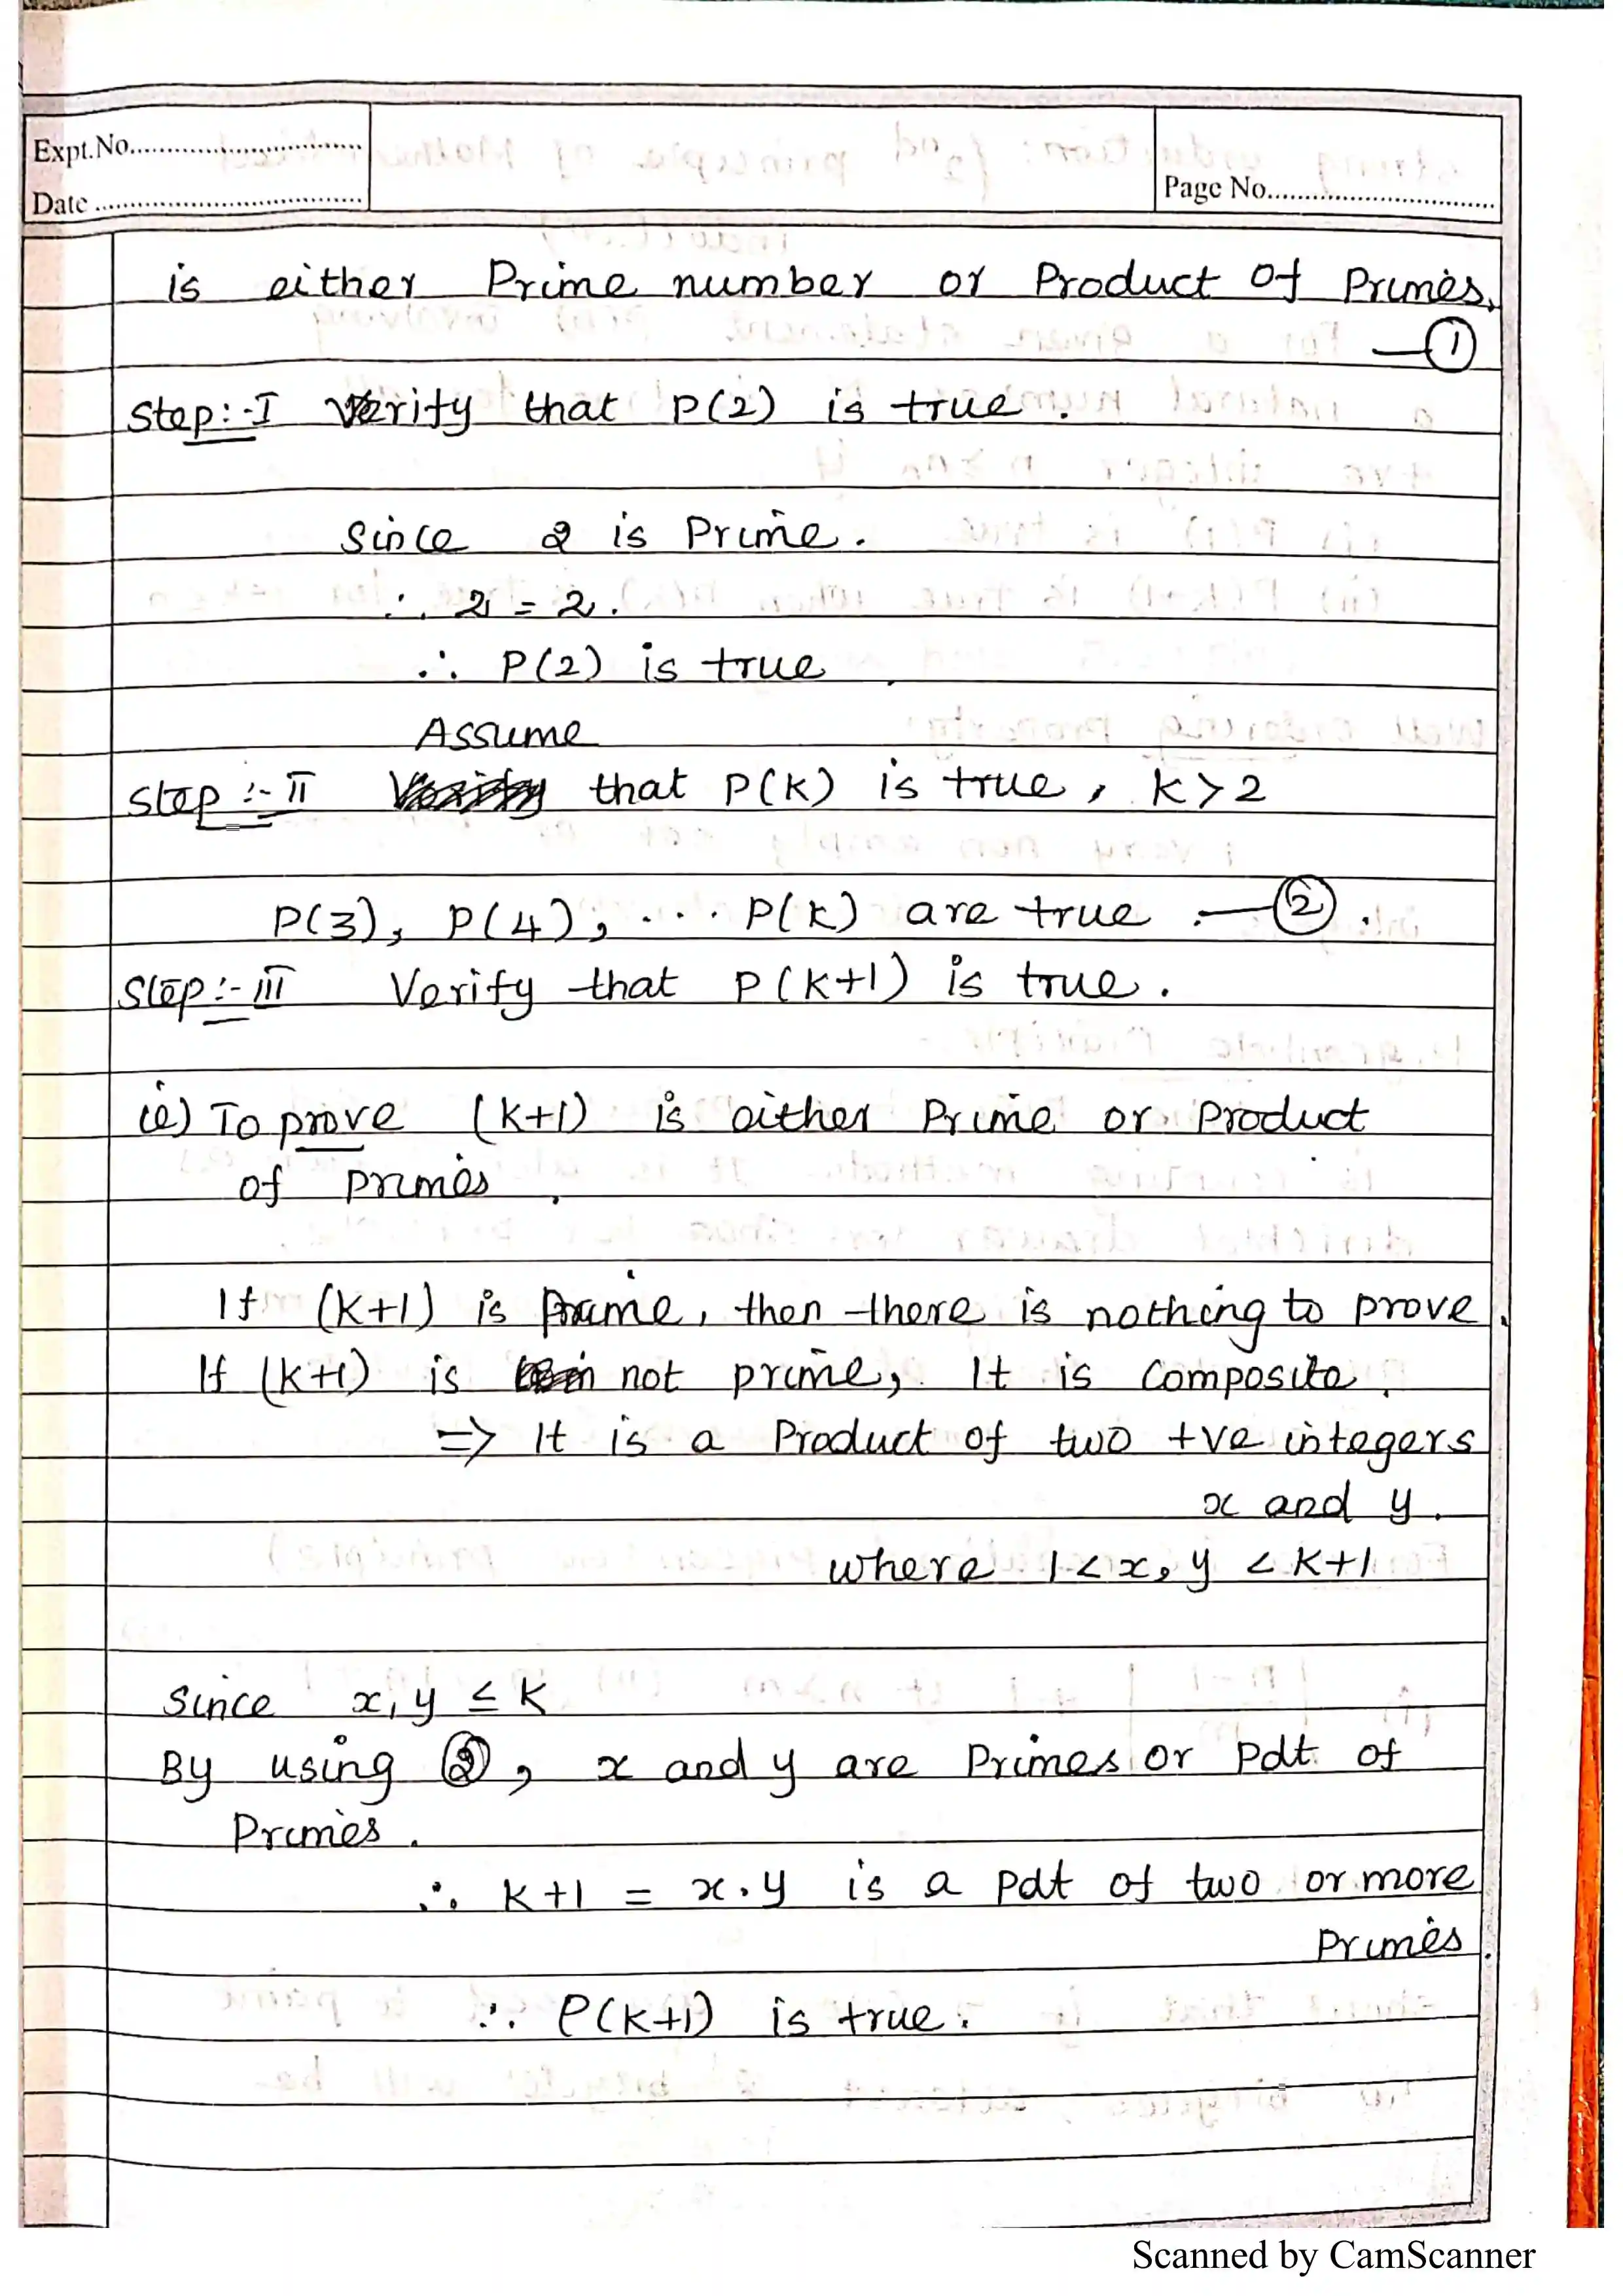 Expt.No.
Date
Page No.
is either Prime number or Product of Primes.
— ①
Step:-I Verify that P(2) is true.
Since 2 is Prime.
∴ 2 = 2.
∴ P(2) is true.
Assume
Step:-II that P(K) is true, K>2
P(3), P(4), ... P(K) are true. — ②.
Step:-III Verify that P(K+1) is true.
ie) To prove (K+1) is either Prime or Product
of primes.
If (K+1) is prime, then there is nothing to prove.
If (K+1) is not prime, It is composite.
=> It is a Product of two +ve integers
x and y.
where 1<x, y < K+1
Since x, y ≤ K
By using ②, x and y are Primes or Pdt of
Primes.
∴ K+1 = x.y is a Pdt of two or more
Primes.
∴ P(K+1) is true.
Scanned by CamScanner